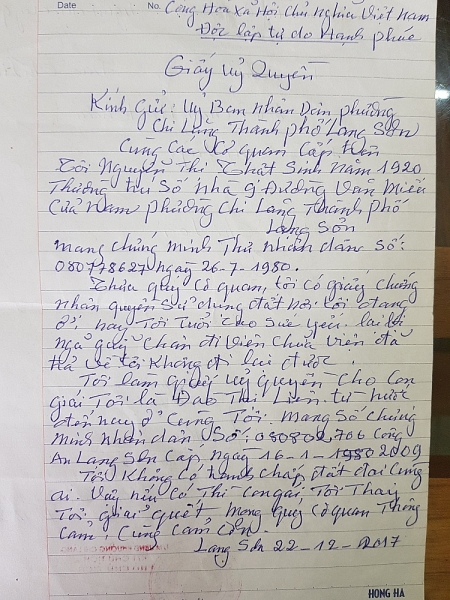 Date No. Cộng Hòa Xã Hội Chủ Nghĩa Việt Nam
Độc lập tự do Hạnh phúc
Giấy uỷ Quyền
Kính gửi: Uỷ Ban nhân Dân phường
Chi Lăng Thành phố Lạng Sơn
Cùng Các Cơ quan Cấp trên
Tôi Nguyễn Thị Thật Sinh năm 1920
Thường trú Số nhà 9 Đường Văn Miếu
Cửa Nam phường Chi Lăng Thành phố
Lạng Sơn
mang chứng minh Thư nhân dân số:
080778627 ngày 26-7-1980.
Thưa quý cơ quan, tôi có giấy chứng
nhận quyền sử dụng đất nơi tôi đang
ở, nay Tôi Tuổi cao sức yếu. lại bị
ngã gãy chân đi viện chữa viện đã
trả về tôi không đi lại được.
Tôi làm giấy uỷ quyền cho con
gái Tôi là Đào Thị Liên. từ trước
đến nay ở cùng Tôi. Mang Số Chứng
minh nhân dân Số: 080802706 Công
An Lạng Sơn Cấp ngày 16-1-2009
Tôi Không Có tranh chấp đất đai cùng
ai. Vậy nếu Có Thì con gái Tôi Thay
Tôi giải quyết mong quý cơ quan Thông
Cảm. Cùng Cảm Ơn.
Lạng Sơn 22-12-2017
HONG HA